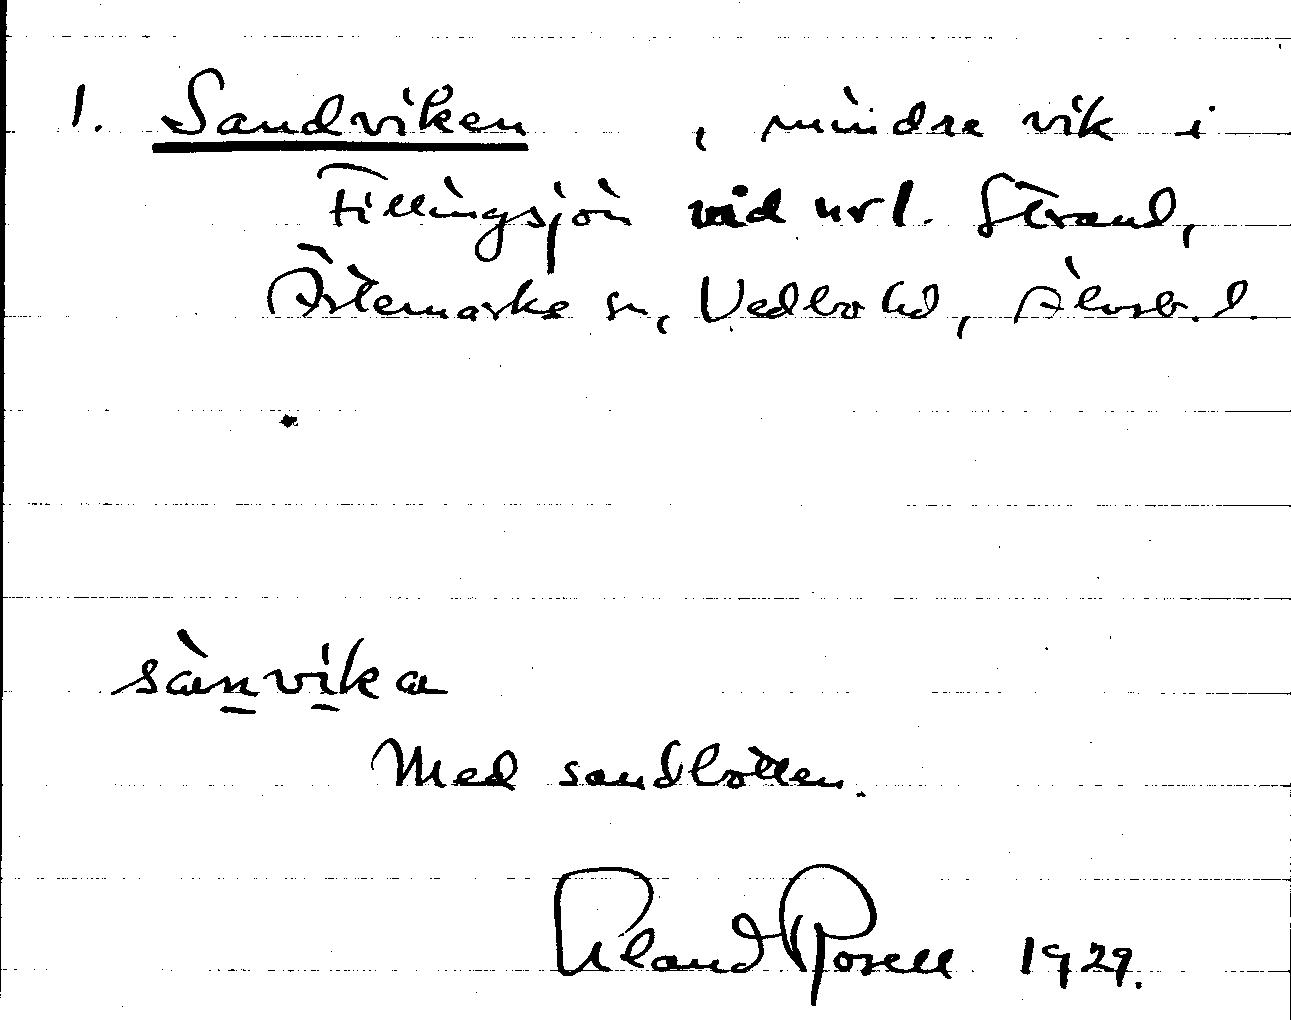 1. Sandviken, mindre vik i
Fillingsjön vid url. Strand,
Ärtemarks sn, Vedbo hd, Älvsb. l.
sàn̲vi̲ka
Med sandbotten.
Erland Rosell 1929.